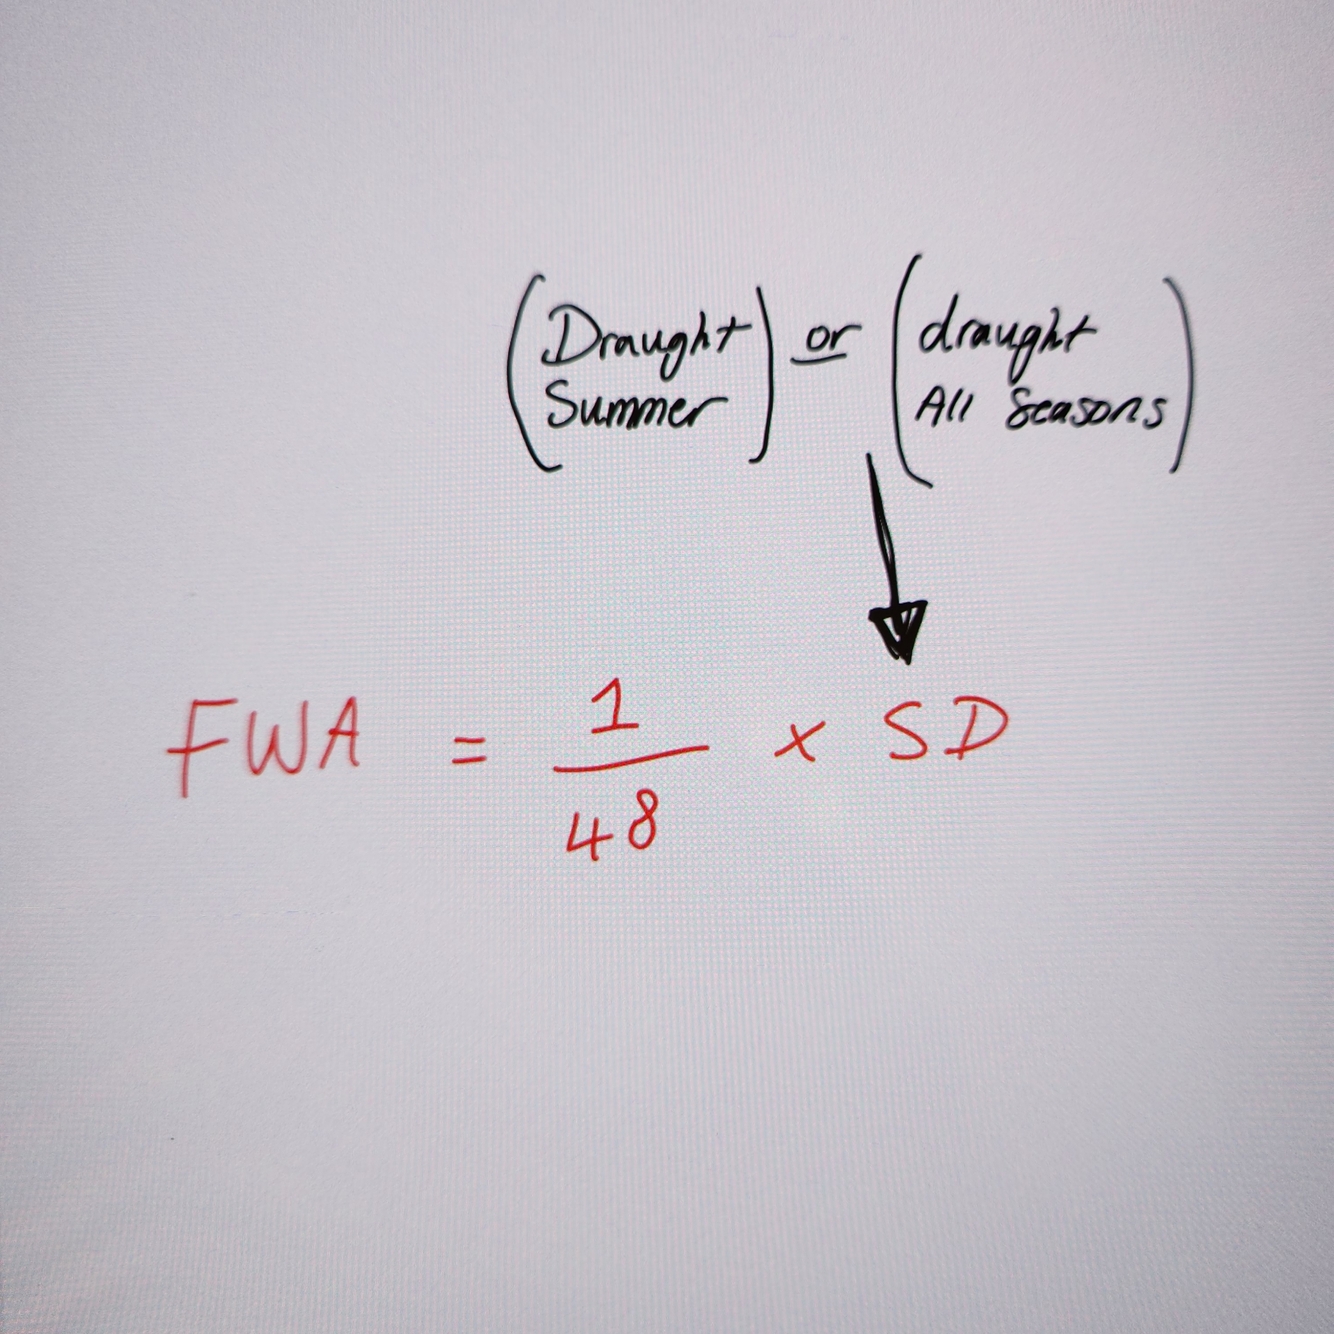 (Draught Summer) or (draught All Seasons)
FWA = 1/48 × SD